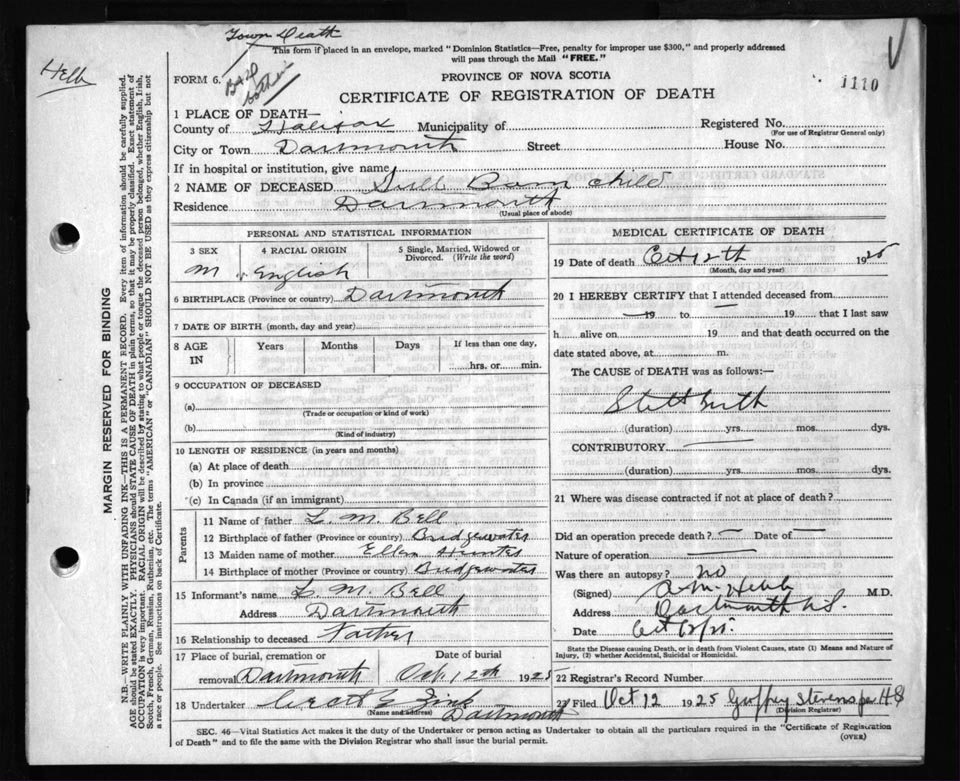 Town Death
This form if placed in an envelope, marked "Dominion Statistics—Free, penalty for improper use $300," and properly addressed
will pass through the Mail "FREE."
FORM 6.
PROVINCE OF NOVA SCOTIA
1110
CERTIFICATE OF REGISTRATION OF DEATH
1 PLACE OF DEATH—
County of Halifax Municipality of Registered No.
(For use of Registrar General only)
City or Town Dartmouth Street House No.
If in hospital or institution, give name
2 NAME OF DECEASED Still Born child
Residence Dartmouth
(Usual place of abode)
PERSONAL AND STATISTICAL INFORMATION
3 SEX 4 RACIAL ORIGIN 5 Single, Married, Widowed or
Divorced. (Write the word)
M English
6 BIRTHPLACE (Province or country) Dartmouth
7 DATE OF BIRTH (month, day and year)
8 AGE IN Years Months Days If less than one day,
hrs. or min.
9 OCCUPATION OF DECEASED
(a)
(Trade or occupation or kind of work)
(b)
(Kind of industry)
10 LENGTH OF RESIDENCE (in years and months)
(a) At place of death
(b) In province
(c) In Canada (if an immigrant)
Parents
11 Name of father L. M. Bell
12 Birthplace of father (Province or country) Bridgewater
13 Maiden name of mother Ellen Hunter
14 Birthplace of mother (Province or country) Bridgewater
15 Informant's name L. M. Bell
Address Dartmouth
16 Relationship to deceased Father
17 Place of burial, cremation or Date of burial
removal Dartmouth Oct. 12th 1925
18 Undertaker Zink
(Name and address) Dartmouth
MEDICAL CERTIFICATE OF DEATH
19 Date of death Oct 12th 1925
(Month, day and year)
20 I HEREBY CERTIFY that I attended deceased from
19 to — 19 that I last saw
h alive on 19 and that death occurred on the
date stated above, at m.
The CAUSE of DEATH was as follows:—
Still birth
(duration) yrs. mos. dys.
CONTRIBUTORY
(duration) yrs. mos. dys.
21 Where was disease contracted if not at place of death?
Did an operation precede death? — Date of —
Nature of operation —
Was there an autopsy? no
(Signed) M.D.
Address Dartmouth N.S.
Date Oct 12/25.
State the Disease causing Death, or in death from Violent Causes, state (1) Means and Nature of
Injury, (2) whether Accidental, Suicidal or Homicidal.
22 Registrar's Record Number
23 Filed Oct 12 1925 Geoffrey Stevens per HS
(Division Registrar)
SEC. 46—Vital Statistics Act makes it the duty of the Undertaker or person acting as Undertaker to obtain all the particulars required in the "Certificate of Registration
of Death" and to file the same with the Division Registrar who shall issue the burial permit. (OVER)
MARGIN RESERVED FOR BINDING
N.B.—WRITE PLAINLY WITH UNFADING INK—THIS IS A PERMANENT RECORD. Every item of information should be carefully supplied.
AGE should be stated EXACTLY. PHYSICIANS should STATE CAUSE OF DEATH in plain terms, so that it may be properly classified. Exact statement of
OCCUPATION is very important. RACIAL ORIGIN will be described by stating to what people or tongue the deceased person belonged, whether English, Irish,
Scotch, French, German, Russian, Ruthenian, etc. The terms "AMERICAN" or "CANADIAN" SHOULD NOT BE USED as they express citizenship but not
a race or people. See instructions on back of Certificate.